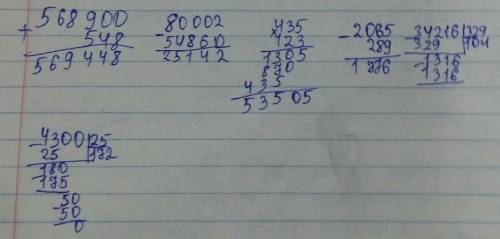 + 568900
548
569448
- 80002
54860
25142
× 435
123
1305
870
435
53505
- 2065
289
1776
- 34216 | 329
329 | 104
- 1316
1316
- 4300 | 25
25 | 172
- 180
175
- 50
50
0